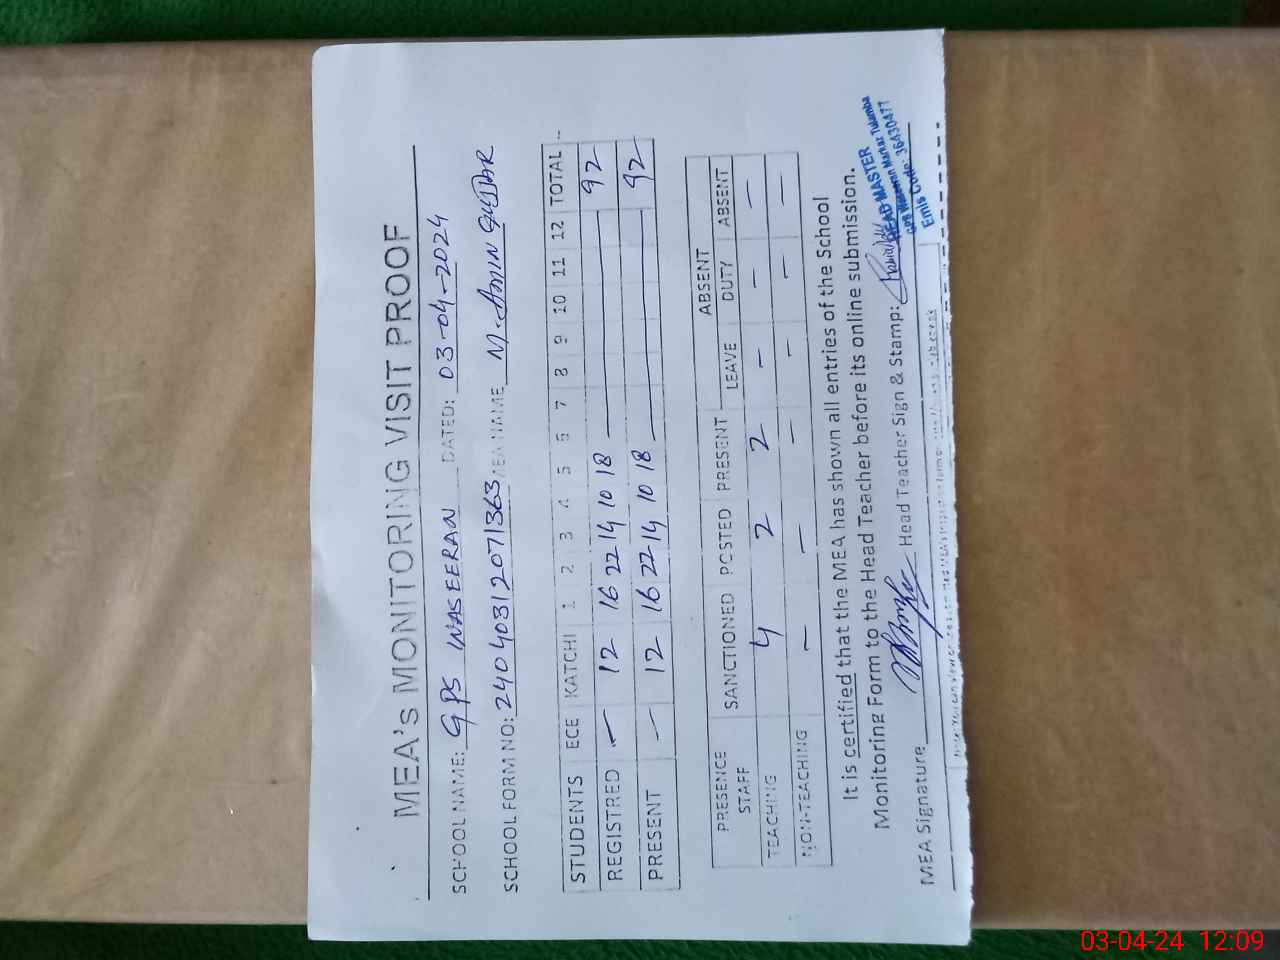 MEA's MONITORING VISIT PROOF
SCHOOL NAME: GPS WASEERAN DATED: 03-04-2024
SCHOOL FORM NO: 24040312071363 MEA NAME M. AMIN GUJJAR
STUDENTS ECE KATCHI 1 2 3 4 5 6 7 8 9 10 11 12 TOTAL
REGISTRED — 12 16 22 14 10 18 — 92
PRESENT — 12 16 22 14 10 18 — 92
PRESENCE STAFF SANCTIONED POSTED PRESENT LEAVE ABSENT DUTY ABSENT
TEACHING 4 2 2 — — —
NON-TEACHING — — — — — —
It is certified that the MEA has shown all entries of the School
Monitoring Form to the Head Teacher before its online submission.
MEA Signature Head Teacher Sign & Stamp:
HEAD MASTER
GPS Waseeran Markaz Tulamba
Emis Code: 36430477
03-04-24 12:09